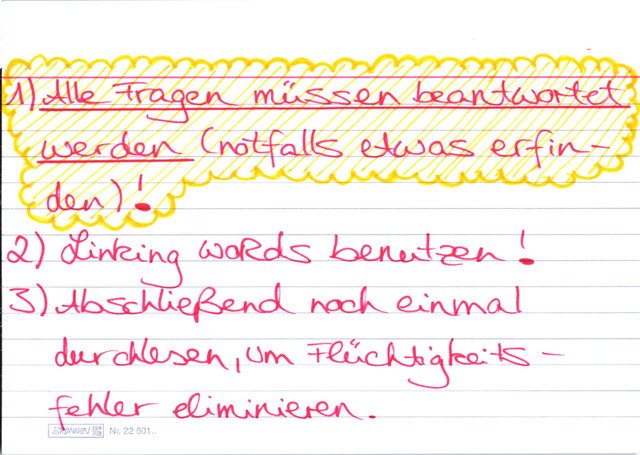 1) Alle Fragen müssen beantwortet
werden (notfalls etwas erfin-
den)!
2) Linking words benutzen!
3) Abschließend noch einmal
durchlesen, um Flüchtigkeits-
fehler eliminieren.
BRUNNEN Nr. 22 901..